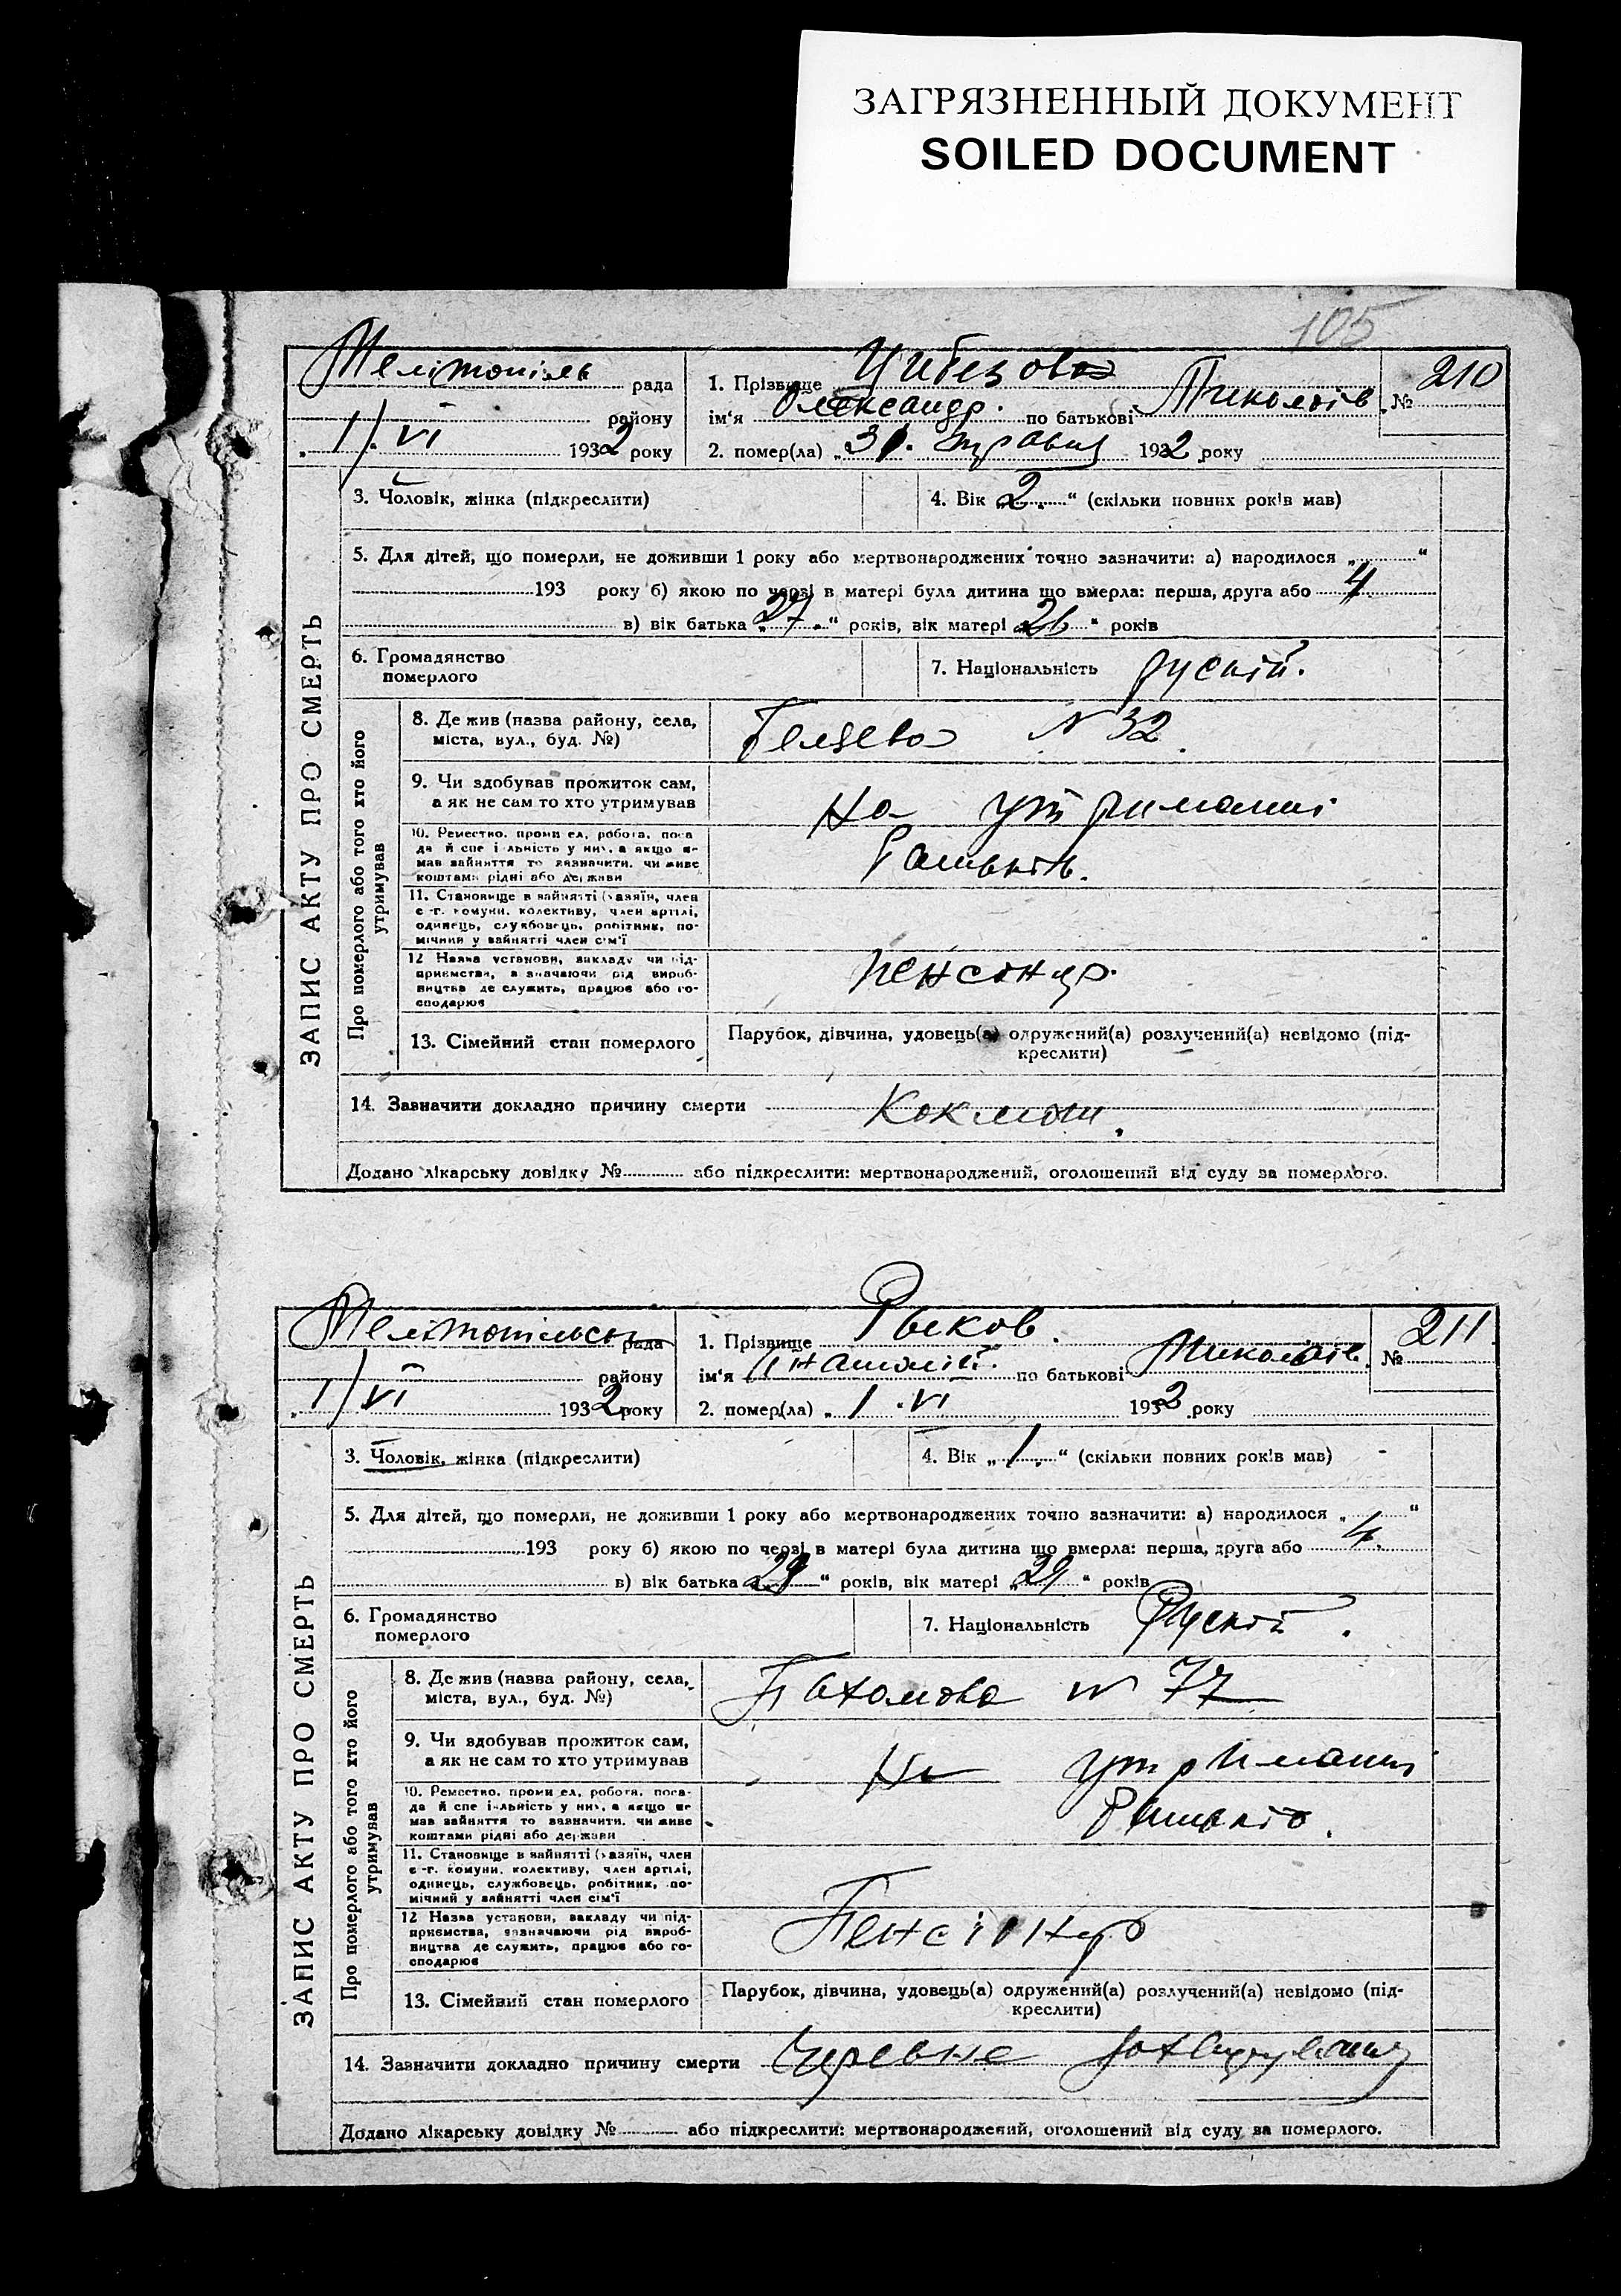 ЗАГРЯЗНЕННЫЙ ДОКУМЕНТ
SOILED DOCUMENT
105
Мелітопіль рада
району
1/VI 1932 року
1. Прізвище
ім'я Олександр. по батькові Миколаїв
№ 210
2. помер(ла) „31. травня 1932 року
ЗАПИС АКТУ ПРО СМЕРТЬ
3. Чоловік, жінка (підкреслити)
4. Вік „2“ (скільки повних років мав)
5. Для дітей, що померли, не доживши 1 року або мертвонароджених точно зазначити: а) народилося „ “
193 року б) якою по черзі в матері була дитина що вмерла: перша, друга або 4
в) вік батька „27.“ років, вік матері „26“ років
6. Громадянство
померлого
7. Національність руський.
Про померлого або того хто його
утримував
8. Де жив (назва району, села,
міста, вул., буд. №)
N 32
9. Чи здобував прожиток сам,
а як не сам то хто утримував
На утриманні
10. Ремество, промисел, робота, поса
да й спеціальність у них, а якщо не
мав зайняття то зазначити, чи живе
коштами рідні або держави
батьків.
11. Становище в зайнятті (хазяїн, член
с.-г. комуни, колективу, член артілі,
одинець, службовець, робітник, по-
мічний у зайнятті член сім'ї
12 Назва установи, закладу чи під-
приємства, зазначаючи рід вироб-
ництва де служить, працює або го-
сподарює
пенсонер.
13. Сімейний стан померлого
Парубок, дівчина, удовець(а) одружений(а) розлучений(а) невідомо (під-
креслити)
14. Зазначити докладно причину смерти Коклюш.
Додано лікарську довідку № або підкреслити: мертвонароджений, оголошений від суду за померлого.
Мелітопільська рада
району
1/VI 1932 року
1. Прізвище Рыков.
ім'я Анатолій. по батькові Миколаїв.
№ 211
2. помер(ла) „1.VI 1932 року
ЗАПИС АКТУ ПРО СМЕРТЬ
3. Чоловік, жінка (підкреслити)
4. Вік „1.“ (скільки повних років мав)
5. Для дітей, що померли, не доживши 1 року або мертвонароджених точно зазначити: а) народилося „ “
193 року б) якою по черзі в матері була дитина що вмерла: перша, друга або 4.
в) вік батька „29“ років, вік матері „29“ років
6. Громадянство
померлого
7. Національність Руский.
Про померлого або того хто його
утримував
8. Де жив (назва району, села,
міста, вул., буд. №)
Пахомова N 77
9. Чи здобував прожиток сам,
а як не сам то хто утримував
На утриманні
10. Ремество, промисел, робота, поса-
да й спеціальність у них, а якщо не
мав зайняття то зазначити, чи живе
коштами рідні або держави
батьків.
11. Становище в зайнятті (хазяїн, член
с.-г. комуни, колективу, член артілі,
одинець, службовець, робітник, по-
мічний у зайнятті член сім'ї
12 Назва установи, закладу чи під-
приємства, зазначаючи рід вироб-
ництва де служить, працює або го-
сподарює
Пенсіонер
13. Сімейний стан померлого
Парубок, дівчина, удовець(а) одружений(а) розлучений(а) невідомо (під-
креслити)
14. Зазначити докладно причину смерти
Додано лікарську довідку № або підкреслити: мертвонароджений, оголошений від суду за померлого.